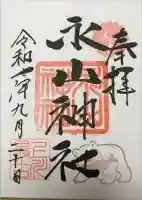 奉拝
永山神社
令和二年九月二十日